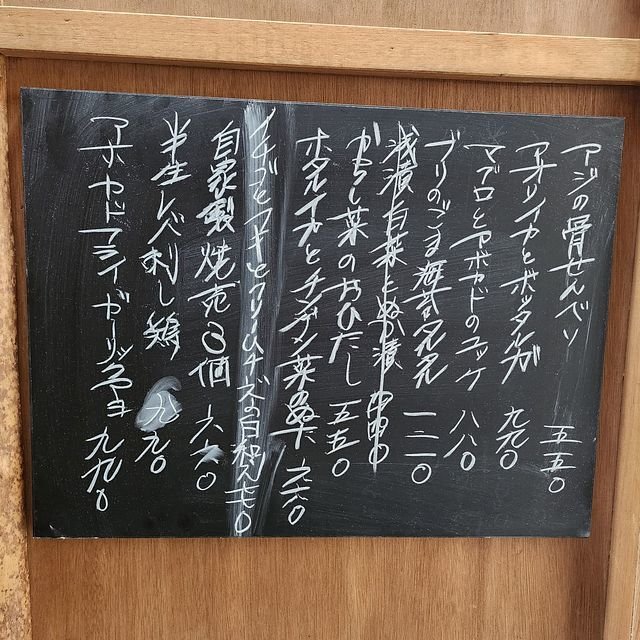 アジの骨せんべい 五五〇
アオリイカとボッタルガ 九九〇
マグロとアボカドのユッケ 八八〇
ブリのごま 一二一〇
浅漬白菜とぬか漬
からし菜のおひたし 五五〇
ホタルイカとチンゲン菜のぬた
イチゴと とクリームチーズの白和え 〇
自家製焼売3個 六六〇
半生レバ刺し鶏 九九〇
アボカドフライガーリック 九九〇